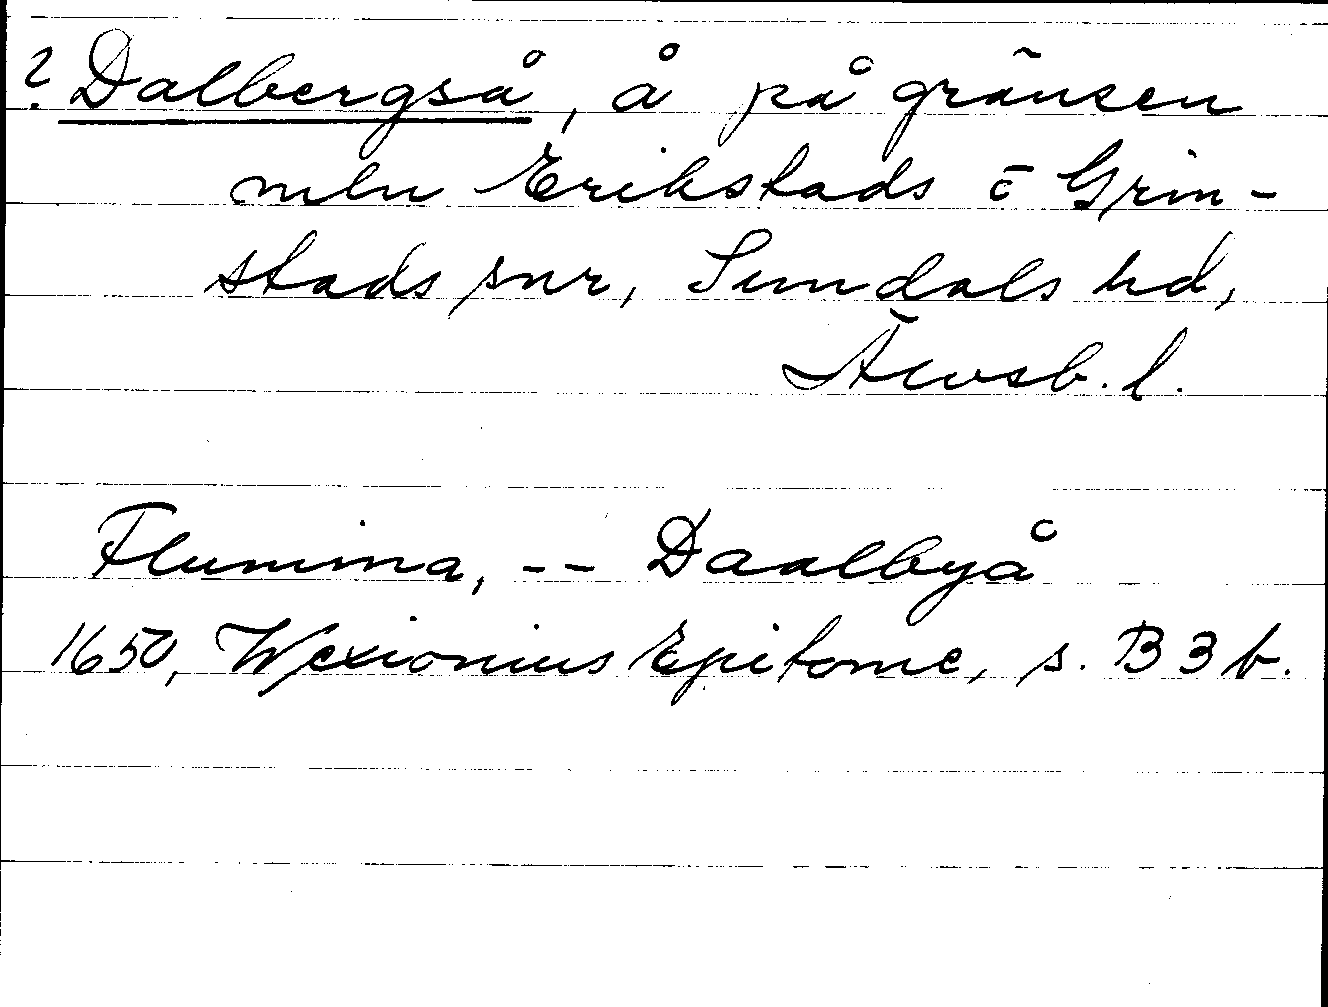 ? Dalbergså, å på gränsen
mln Erikstads o Grin-
stads snr, Sundals hd,
Älvsb. l.
Flumina, -- Daalbyå
1650, Wexionius Epitome, s. B 3 b.